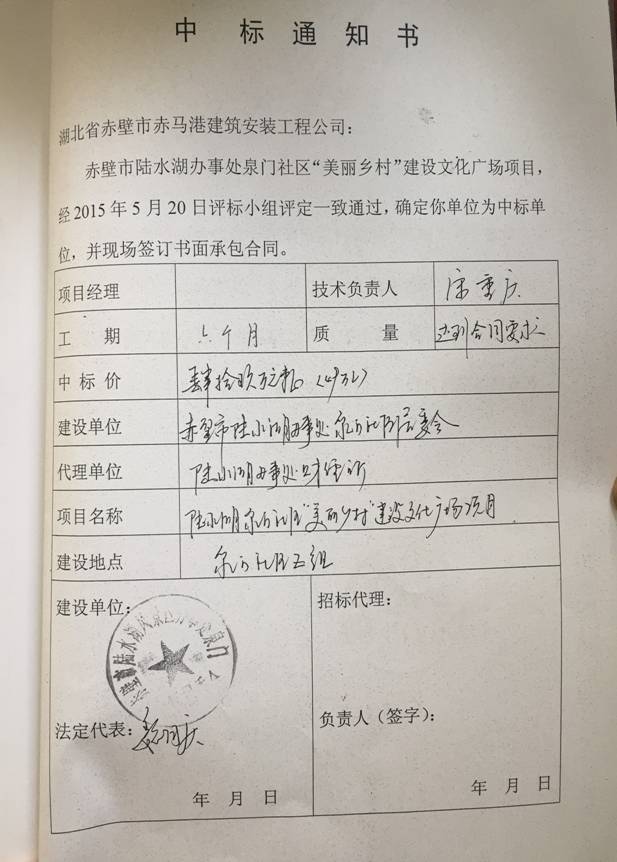 中标通知书
湖北省赤壁市赤马港建筑安装工程公司：
赤壁市陆水湖办事处泉门社区“美丽乡村”建设文化广场项目，
经2015年5月20日评标小组评定一致通过，确定你单位为中标单
位，并现场签订书面承包合同。
项目经理 技术负责人 宋重庆
工期 六个月 质量 达到合同要求
中标价 肆拾玖万元
建设单位 赤壁市陆水湖办事处泉门社区居委会
代理单位 陆水湖办事处财经所
项目名称 陆水湖泉门社区“美丽乡村”建设文化广场项目
建设地点 泉门社区三组
建设单位： 招标代理：
赤壁市陆水湖风景区办事处泉门
法定代表： 负责人（签字）：
年 月 日 年 月 日